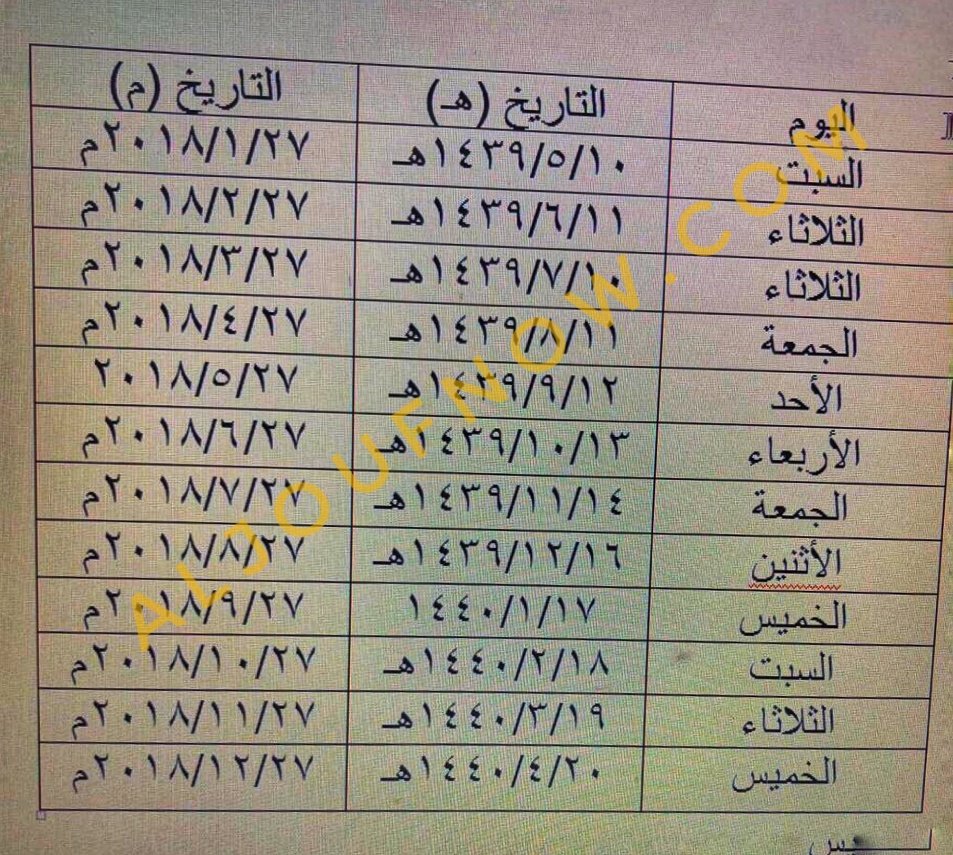 اليوم التاريخ (هـ) التاريخ (م)
السبت ١٤٣٩/٥/١٠هـ ٢٠١٨/١/٢٧م
الثلاثاء ١٤٣٩/٦/١١هـ ٢٠١٨/٢/٢٧م
الثلاثاء ١٤٣٩/٧/١٠هـ ٢٠١٨/٣/٢٧م
الجمعة ١٤٣٩/٨/١١هـ ٢٠١٨/٤/٢٧م
الأحد ١٤٣٩/٩/١٢هـ ٢٠١٨/٥/٢٧
الأربعاء ١٤٣٩/١٠/١٣هـ ٢٠١٨/٦/٢٧م
الجمعة ١٤٣٩/١١/١٤هـ ٢٠١٨/٧/٢٧م
الأثنين ١٤٣٩/١٢/١٦هـ ٢٠١٨/٨/٢٧م
الخميس ١٤٤٠/١/١٧ ٢٠١٨/٩/٢٧م
السبت ١٤٤٠/٢/١٨هـ ٢٠١٨/١٠/٢٧م
الثلاثاء ١٤٤٠/٣/١٩هـ ٢٠١٨/١١/٢٧م
الخميس ١٤٤٠/٤/٢٠هـ ٢٠١٨/١٢/٢٧م
ALJOUFNOW.COM